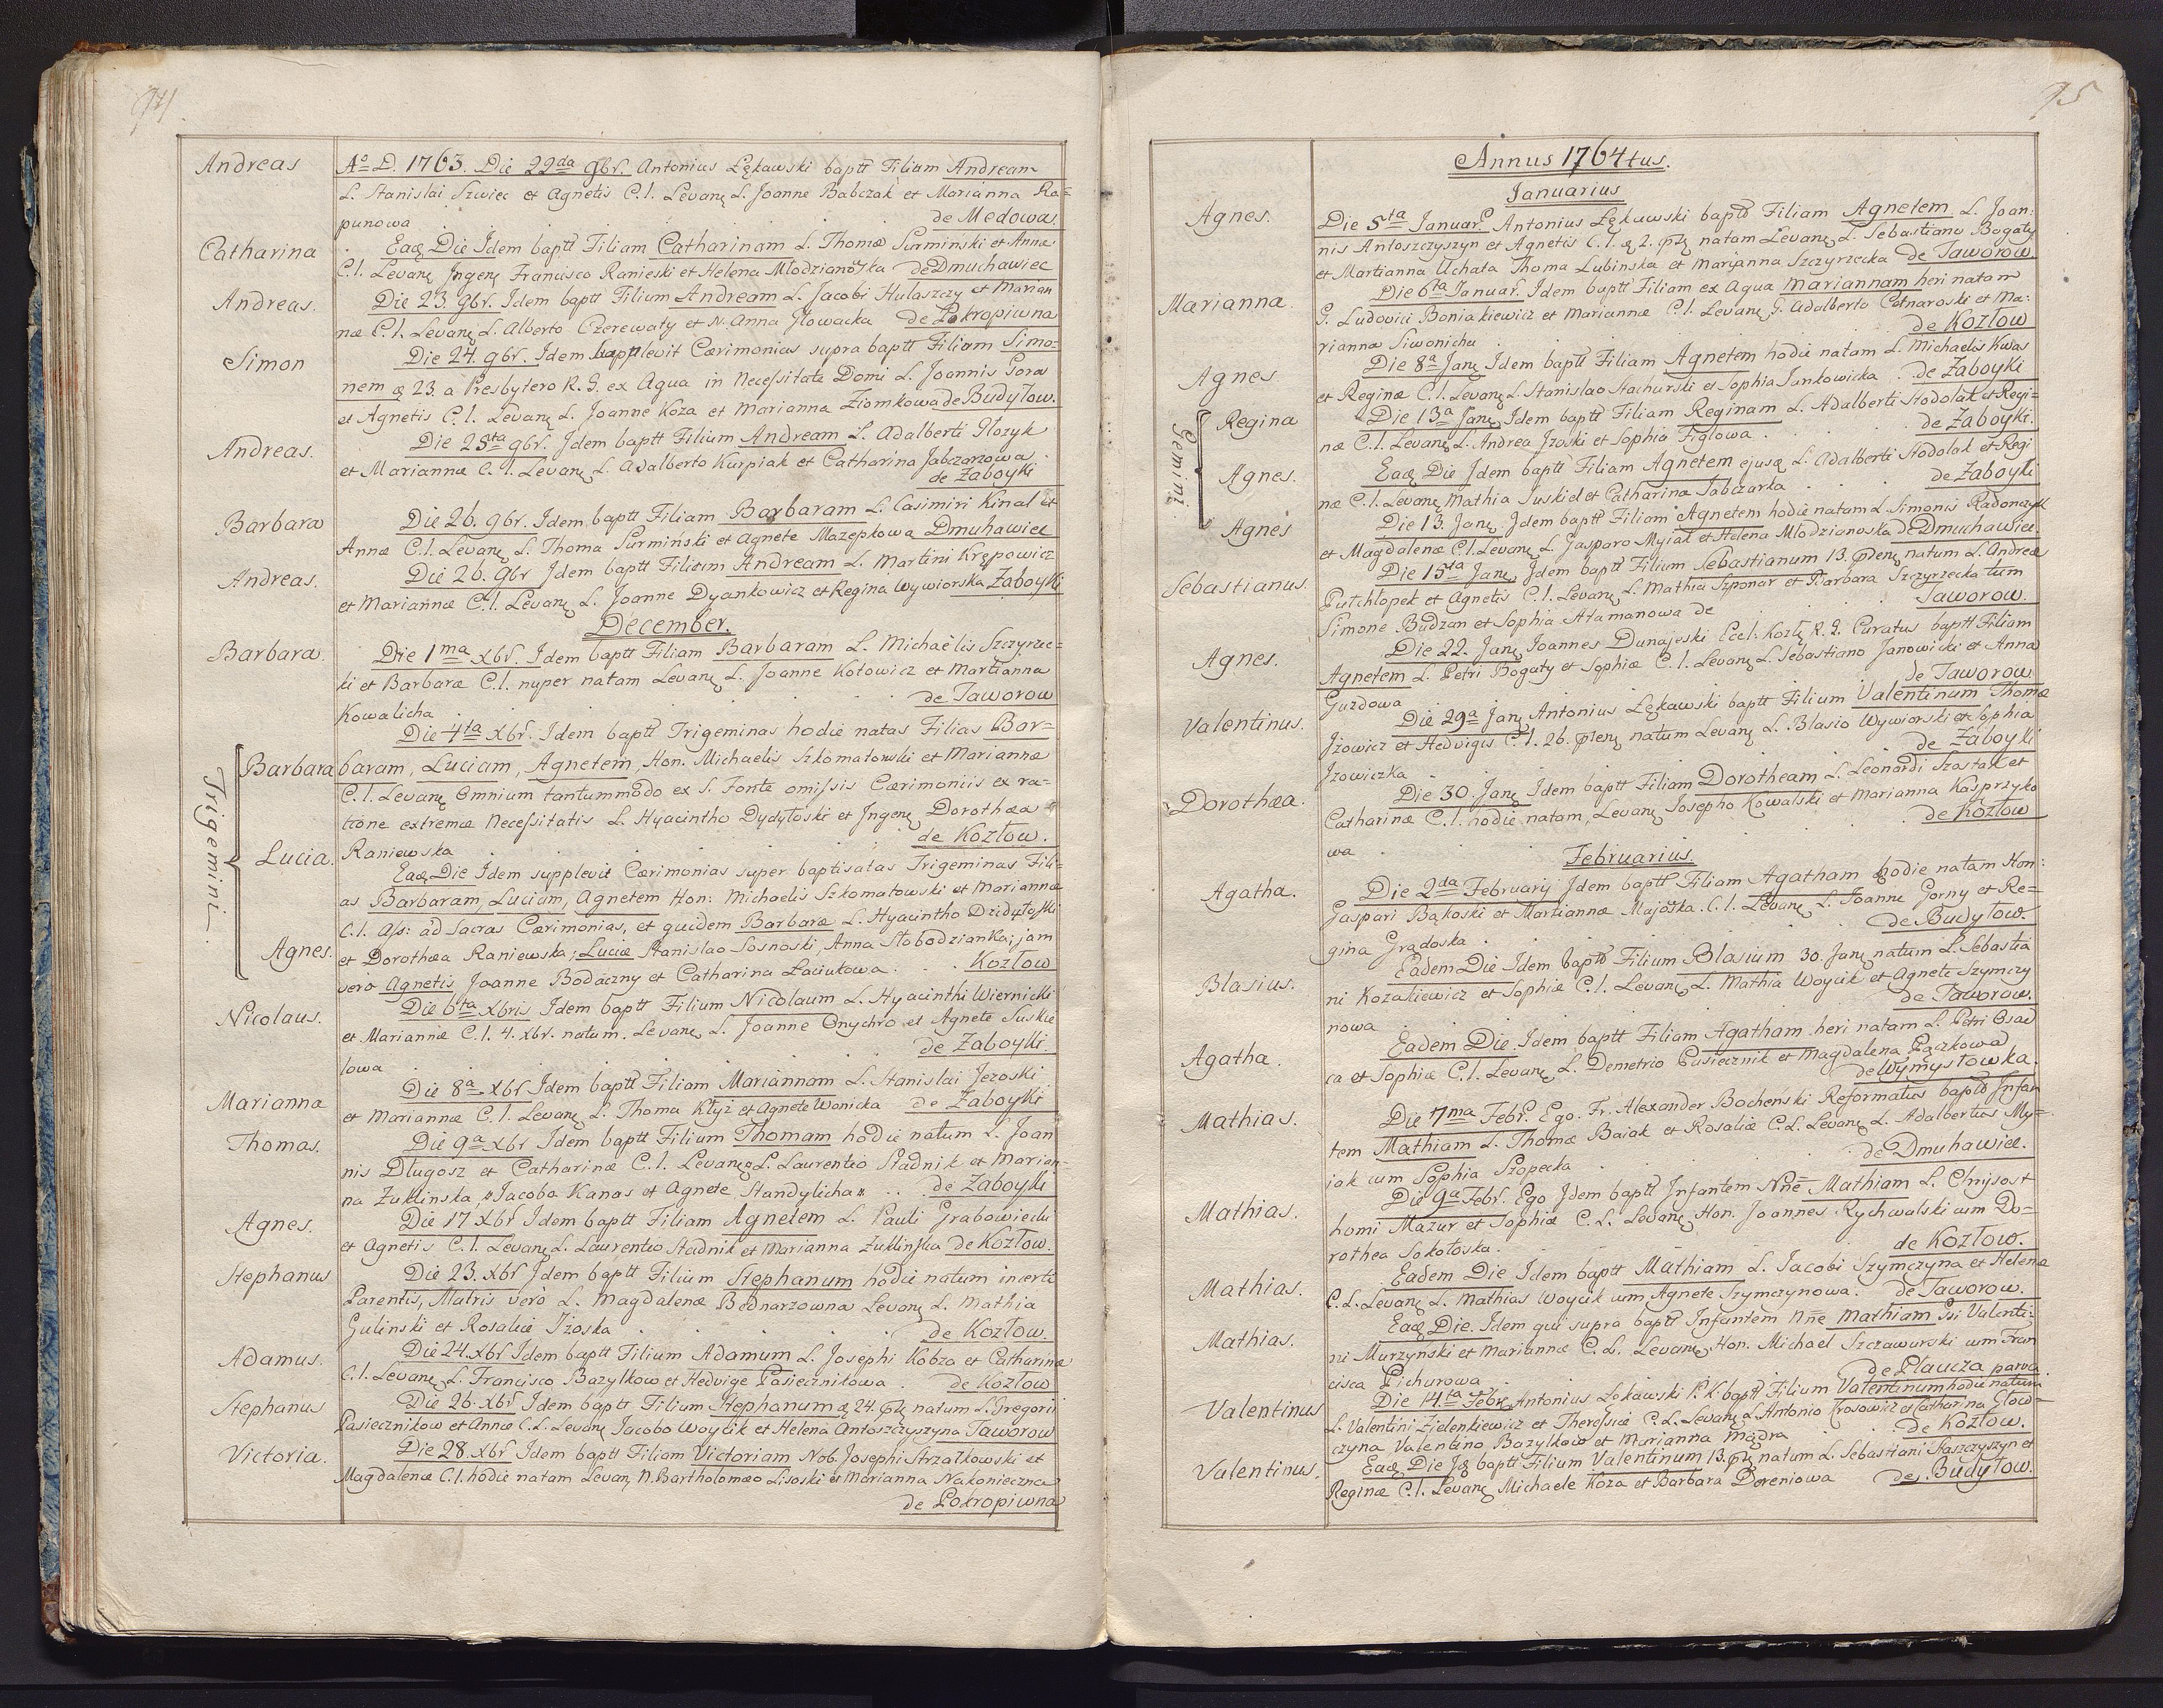 94
Andreas
A° D. 1763. Die 22da 9br. Antonius Łękawski baptt Filium Andream
L. Stanislai Szwiec et Agnetis C.l. Levanę L. Joanne Babczak et Marianna Ra=
punowa de Medowa.
Catharina
Eaę Die Idem baptt Filiam Catharinam L. Thomæ Surmiński et Annæ
C.l. Levanę Ingenę Francisco Ranieski et Helena Młodzianoska de Dmuchawiec
Andreas.
Die 23. 9br. Idem baptt Filium Andream L. Jacobi Hulaszczy et Marian
næ C.l. Levanę L. Alberto Czerewaty et N. Anna Głowacka de Pokropiwna
Simon
Die 24. 9br. Idem supplevit Cærimonias supra baptt Filium Simo=
nem ę 23. a Presbytero R. G. ex Aqua in Necessitate Domi L. Joannis Gora
et Agnetis C.l. Levanę L. Joanne Koza et Marianna Ziomkowa de Budyłow.
Andreas.
Die 25ta 9br. Idem baptt Filium Andream L. Adalberti Głozyk
et Mariannæ C.l. Levanę L. Adalberto Kurpiak et Catharina Jabczarzowa
de Zaboyki
Barbara
Die 26. 9br. Idem baptt Filiam Barbaram L. Casimiri Kinal et
Annæ C.l. Levanę L. Thoma Surmiński et Agnete Mazepkowa Dmuhawiec
Andreas.
Die 26. 9br Idem baptt Filium Andream L. Martini Krępowicz
et Mariannæ C.l. Levanę L. Joanne Dyankowicz et Regina Wywiorska Zaboyki
December.
Barbara.
Die 1ma Xbr. Idem baptt Filiam Barbaram L. Michaëlis Szczyrzec=
ki et Barbaræ C.l. nuper natam Levanę L. Joanne Kotowicz et Martianna
Kowalicha de Taworow
Die 4ta Xbr. Idem baptt Trigeminas hodie natas Filias Bar=
Trigemini
Barbara
baram, Luciam, Agnetem, Hon. Michaelis Szkomatowski et Mariannæ
C.l. Levanę Omnium tantummodo ex S. Fonte omissis Cærimoniis ex ra=
tione extremæ Necessitatis L. Hyacintho Dydytoski et Ingenę Dorothæa
Lucia.
Raniewska de Kozłow.
Eaę Die Idem supplevit Cærimonias super baptisatas Trigeminas Fili=
as Barbaram, Luciam, Agnetem Hon: Michaelis Szkomatowski et Mariannæ
C.l. Ass: ad Sacras Cærimonias, et quidem Barbaræ L. Hyacintho Dzidytoski
Agnes.
et Dorothæa Raniewska; Luciæ Stanislao Sosnoski, Anna Słobodzianka; jam
vero Agnetis Joanne Bodaczny et Catharina Łaciukowa. Kozłow
Nicolaus.
Die 6ta Xbris Idem baptt Filium Nicolaum L. Hyacinthi Wiernicki
et Mariannæ C.l. 4. Xbr. natum. Levanę L. Joanne Onychro et Agnete Suskie
lowa de Zaboyki.
Marianna
Die 8a Xbr Idem baptt Filiam Mariannam L. Stanislai Jezoski
et Mariannæ C.l. Levanę L. Thoma Kłyż et Agnete Wonicka de Zaboyki
Thomas.
Die 9a Xbr Idem baptt Filium Thomam hodie natum L. Joan
nis Długosz et Catharinæ C.l. Levanę L. Laurentio Stadnik et Marian=
na Zuklinska, Jacobo Kanas et Agnete Standylicha de Zaboyki
Agnes.
Die 17 Xbr Idem baptt Filiam Agnetem L. Pauli Grabowiecki
et Agnetis C.l. Levanę L. Laurentio Stadnik et Marianna Zuklinska de Kozłow.
Stephanus
Die 23. Xbr Idem baptt Filium Stephanum hodie natum incerti
Parentis, Matris verò L. Magdalenæ Bednarzowna Levanę L. Mathia
Gulinski et Rosalia Iżoska de Kozłow.
Adamus.
Die 24. Xbr Idem baptt Filium Adamum L. Josephi Kobza et Catharinæ
C.l. Levanę L. Francisco Bazylkow et Hedvige Pasiecznikowa de Kozłow
Stephanus
Die 26. Xbr Idem baptt Filium Stephanum ę 24. natum L. Gregorii
Pasiecznikow et Annæ C.L. Levanę Jacobo Woycik et Helena Antoszczyszyna Taworow
Victoria.
Die 28. Xbr Idem baptt Filiam Victoriam Nob. Josephi Strzałkowski et
Magdalenæ C.l. hodie natam Levanę N. Bartholomæo Lisoski et Marianna Nakonieczna
de Pokropiwna
95
Annus 1764tus.
Januarius
Agnes.
Die 5ta Januar. Antonius Łękawski baptt Filiam Agnetem L. Joan:
nis Antoszczyszyn et Agnetis C.l. ę 2. natam Levanę L. Sebastiano Bogaty
et Martianna Uchata Thoma Lubinska et Marjanna Szczyrzecka de Taworow.
Marianna.
Die 6ta Januar. Idem baptt Filiam ex Aqua Mariannam heri natam
G. Ludovici Boniakiewicz et Mariannæ C.l. Levanę G. Adalberto Cotnaroski et Ma:
rianna Siwonicha de Kozłow
Agnes
Die 8a Janę Idem baptt Filiam Agnetem hodie natam L. Michaelis Kwas
et Reginæ C.l. Levanę L. Stanislao Stachurski et Sophia Jankowicka de Zaboyki
Gemini
Regina
Die 13a Janę Idem baptt Filiam Reginam L. Adalberti Stodolak et Regi=
næ C.l. Levanę L. Andrea Jzoski et Sophia Figlowa. de Zaboyki.
Agnes.
Eaę Die Idem baptt Filiam Agnetem ejusę L. Adalberti Stodolak et Regi
næ C.l. Levanę Mathia Suskiel et Catharina Jabczarka de Zaboyki
Agnes
Die 13. Janę. Idem baptt Filiam Agnetem hodie natam L. Simonis Radonczyk
et Magdalenæ C.l. Levanę L. Gasparo Myiak et Helena Młodzianoska de Dmuchawiec
Sebastianus.
Die 15ta Janę Idem baptt Filium Sebastianum 13. natum L. Andreæ
Putchłopek et Agnetis C.l. Levanę L. Mathia Szponar et Barbara Szczyrzecka tum
Simone Budzan et Sophia Atamanowa de Taworow.
Agnes.
Die 22. Janę Joannes Dunajeski Eccl. Kozlę R. G. Curatus baptt Filiam
Agnetem L. Petri Bogaty et Sophiæ C.l. Levanę L. Sebastiano Janowicki et Anna
Guzdowa de Taworow
Valentinus.
Die 29a Janę Antonius Łękawski baptt Filium Valentinum Thomæ
Jzowicz et Hedvigis C.l. 26. natum Levanę L. Blasio Wywiorski et Sophia
Jzowiczka de Zaboyki
Dorothæa.
Die 30. Janę Idem baptt Filiam Dorotheam L. Leonardi Szostak et
Catharinæ C.l. hodie natam, Levanę Josepho Kowalski et Marianna Kasprzyko
wa de Kozłow
Februarius.
Agatha.
Die 2da February Idem baptt Filiam Agatham hodie natam Hon:
Gaspari Bąkoski et Martiannæ Majoska. C.l. Levanę L. Joanne Gorny et Re=
gina Grądoska de Budyłow.
Blasius.
Eadem Die Idem baptt Filium Blasium 30. Janę natum L. Sebastia
ni Kozakiewicz et Sophiæ C.l. Levanę L. Mathia Woycik et Agnete Szymczy
nowa de Taworow.
Agatha.
Eadem Die Idem baptt Filiam Agatham heri natam L. Petri Osad
ca et Sophiæ C.l. Levanę L. Demetrio Pasiecznik et Magdalena Pączkowa
de Wymysłowka.
Mathias.
Die 7ma Febr. Ego. Fr. Alexander Bocheński Reformatus baptt Infan
tem Mathiam L. Thomæ Baiak et Rosaliæ C.L. Levanę L. Adalbertus My=
iak cum Sophia Szopecka de Dmuhawiec.
Mathias.
Die 9a Febr. Ego Idem baptt Infantem Nñe Mathiam L. Chrysost
homi Mazur et Sophiæ C.L. Levanę Hon. Joannes Rychwalski cum Do=
rothea Sokołoska. de Kozłow.
Mathias.
Eadem Die Idem baptt Mathiam L. Jacobi Szymczyna et Helenæ
C.L. Levanę L. Mathias Woycik cum Agnete Szymczynowa. de Taworow.
Mathias.
Eaę Die. Idem qui supra baptt Infantem Nñe Mathiam Gsi Valenti:
ni Murzynski et Mariannæ C.L. Levanę Hon. Michael Szczawurski cum Fran
cisca Pichurowa de Płaucza parva
Valentinus
Die 14ta Febr. Antonius Łękawski P.K. baptt Filium Valentinum hodie natum
L. Valentini Zielenkiewicz et Theresiæ C.L. Levanę L. Antonio Krosowicz et Catharina Głow=
czyna Valentino Bazylkow et Marianna Mądra de Kozłow.
Valentinus.
Eaę Die Idę baptt Filium Valentinum 13. natum L. Sebastiani Staszczyszyn et
Reginæ C.l. Levanę Michaele Koza et Barbara Dereniowa de Budyłow.